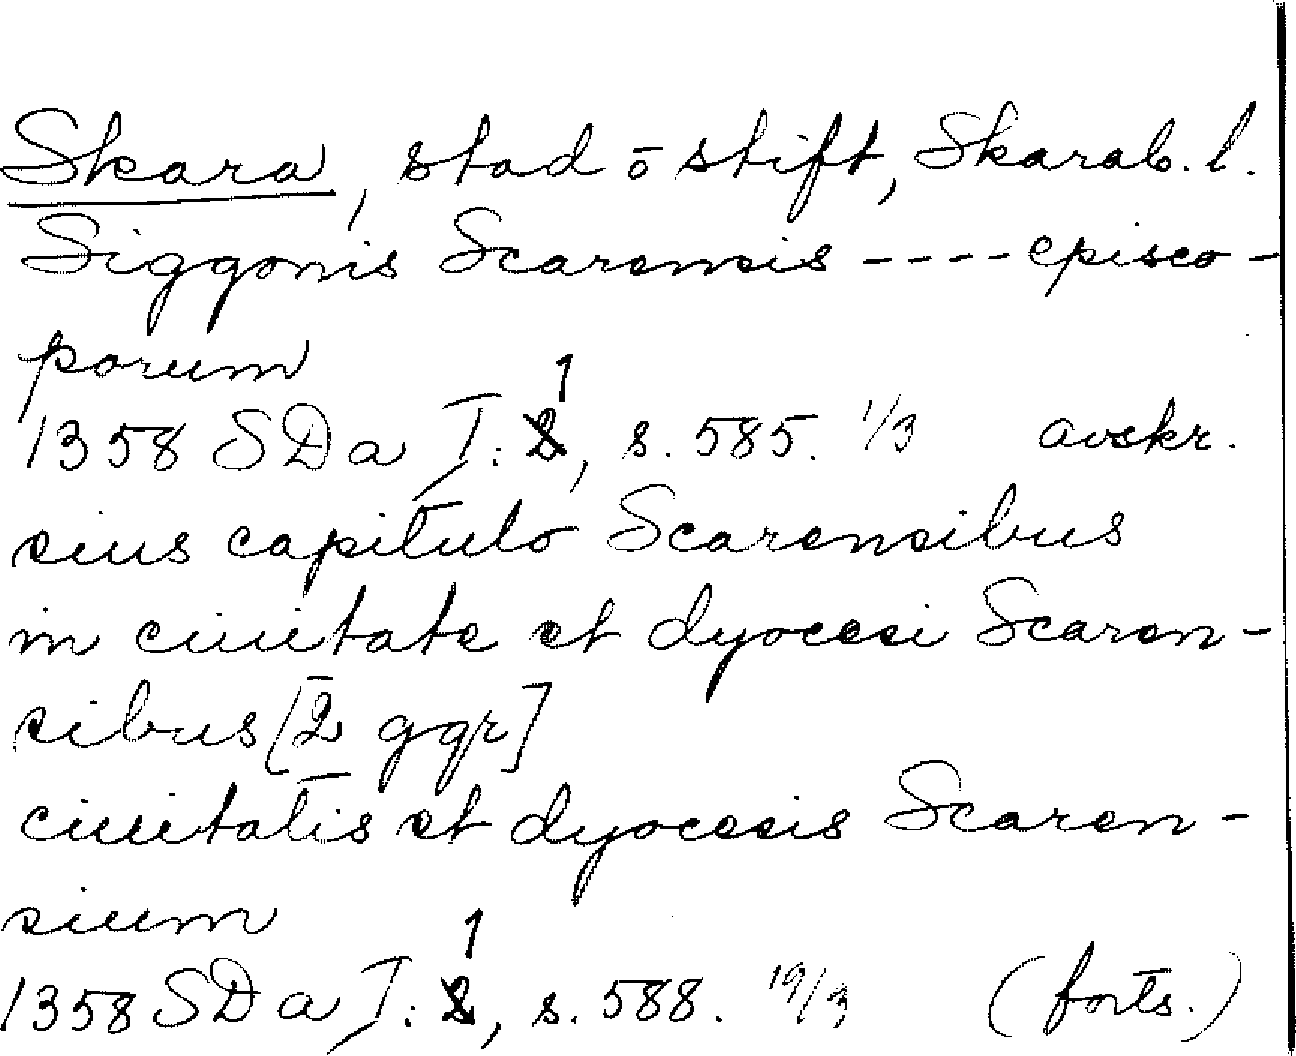 Skara, stad o stift, Skarab. l.
Siggonis Scarensis ---- episco-
porum
1358 SDa I: 1, s. 585. 1/3 avskr.
eius capitulo Scarensibus
in ciuitate et dyocesi Scaren-
sibus [2 ggr]
ciuitatis et dyocesis Scaren-
sium
1358 SDa I: 1, s. 588. 19/3 (forts.)